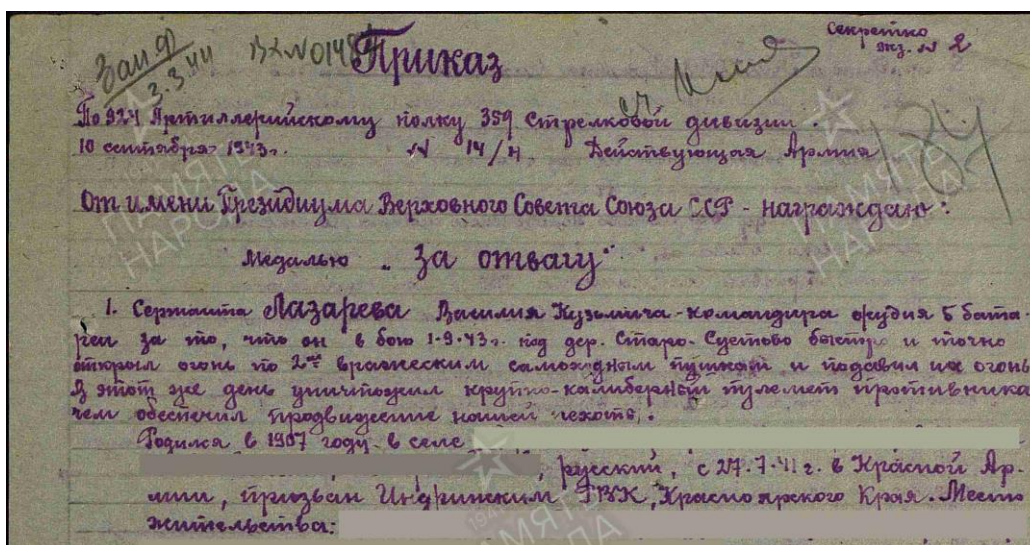 Секретно
экз. № 2
ВхN0148
3.3.44
Приказ
По 924 Артиллерийскому полку 359 Стрелковой дивизии.
10 сентября 1943г. N 14/н Действующая Армия
184
От имени Президиума Верховного Совета Союза ССР - награждаю:
Медалью „За отвагу"
1. Сержанта Лазарева Василия Кузьмича - командира орудия 5 бата-
реи за то, что он в бою 1.9.43г. под дер. Старо- быстро и точно
открыл огонь по 2м вражеским самоходным пушкам и подавил их огонь
В этот же день уничтожил крупно-калиберный пулемет противника
чем обеспечил продвижение нашей пехоте.
Родился в 1907 году в селе
, русский, с 27.7.41г. в Красной Ар-
мии, призван Индринским РВК, Красноярского Края. Место
жительства:
ПАМЯТЬ
НАРОДА
ПАМЯТЬ
НАРОДА
ПАМЯТЬ
НАРОДА